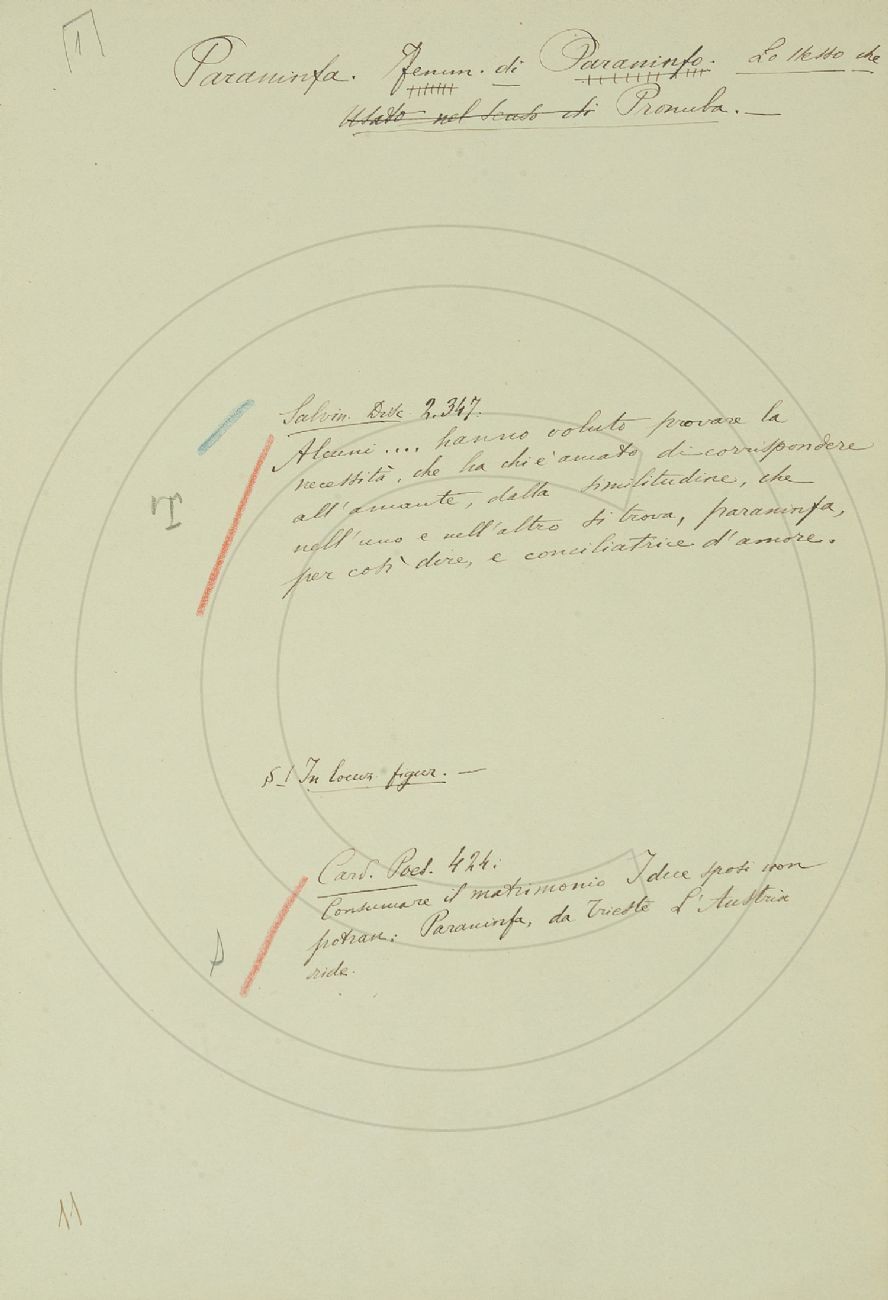 1
Paraninfa. Femm. di Paraninfo. Lo stesso che
Usato nel senso di Pronuba. —
Salvin. Disc. 2.347.
Alcuni .... hanno voluto provare la
necessità, che ha chi è amato di corrispondere
all'amante, dalla similitudine, che
nell'uno e nell'altro si trova, paraninfa,
per così dire, e conciliatrice d'amore.
§ I In locuz. figur. —
Card. Poes. 424:
Consumare il matrimonio I due sposi non
potran: Paraninfa, da Trieste L'Austria
ride.
11